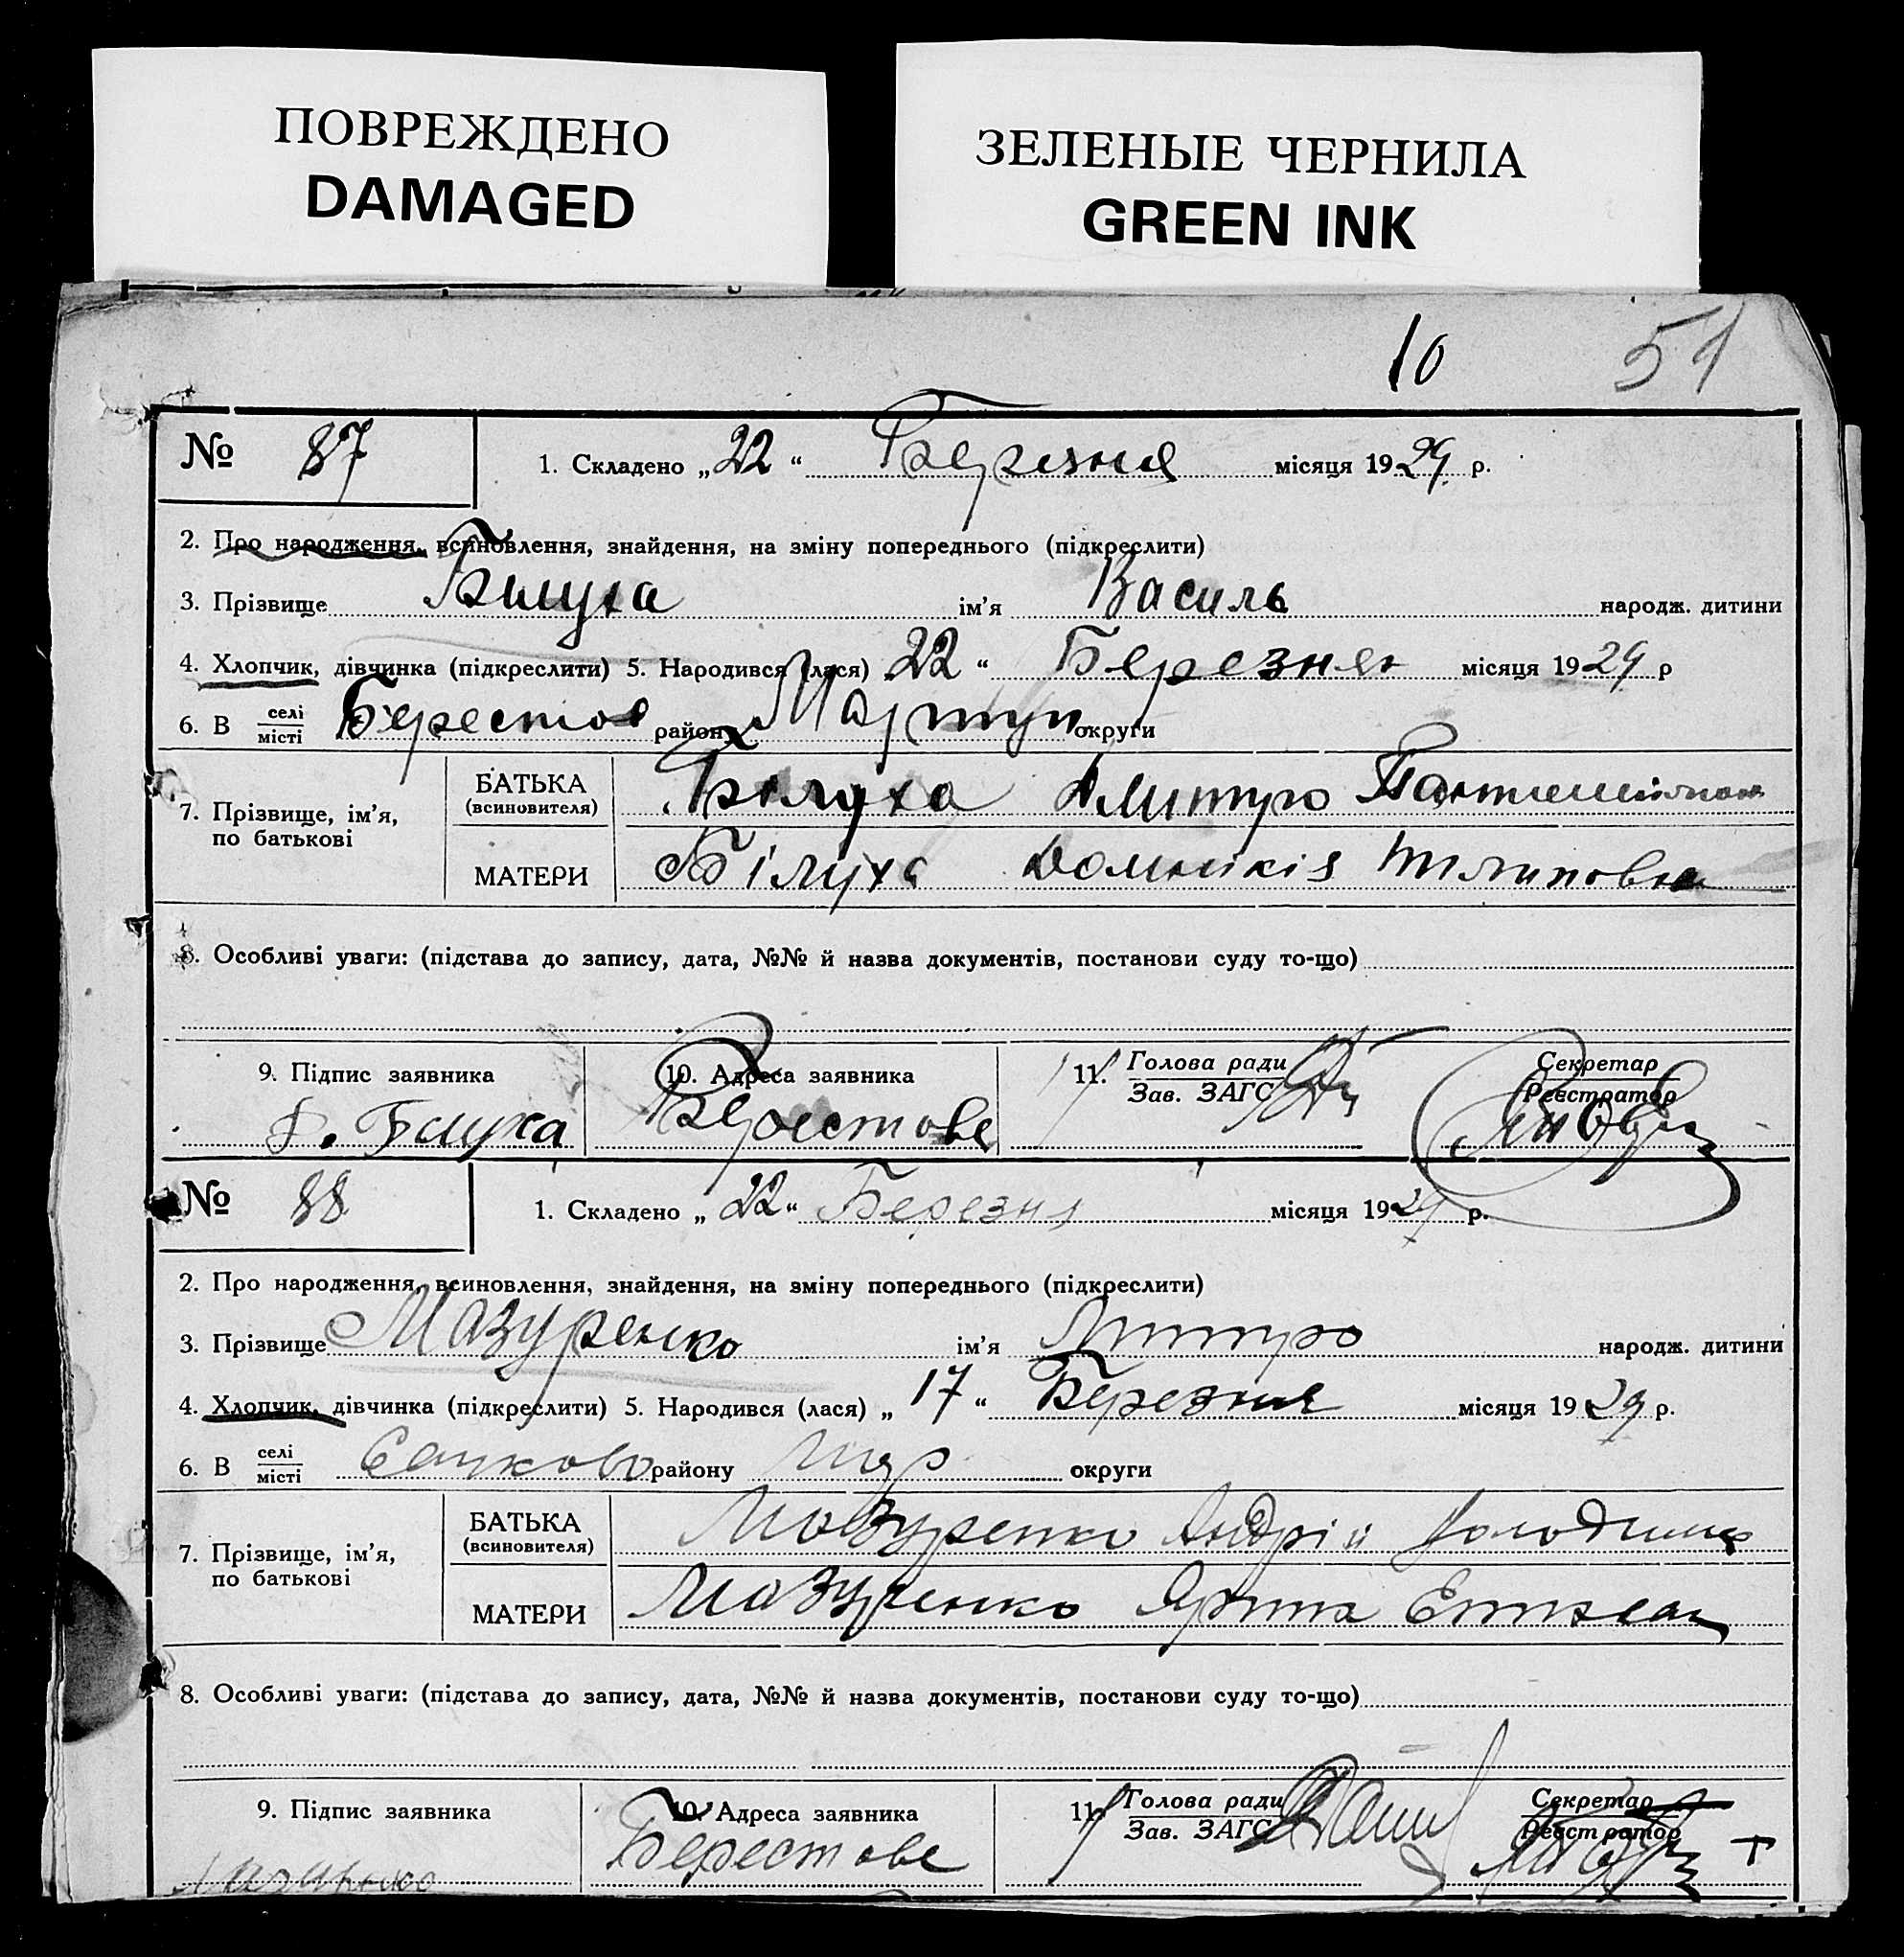 ПОВРЕЖДЕНО
DAMAGED
ЗЕЛЕНЫЕ ЧЕРНИЛА
GREEN INK
10 51
№ 87 1. Складено „22“ Березня місяця 1929 р.
2. Про народження, всиновлення, знайдення, на зміну попереднього (підкреслити)
3. Прізвище Билуха ім'я Василь народж. дитини
4. Хлопчик, дівчинка (підкреслити) 5. Народився (лася) 22“ Березня місяця 1929 р
6. В селі місті Берестов район округи
7. Прізвище, ім'я, по батькові
БАТЬКА (всиновителя) Білуха Дмитро
МАТЕРИ Білуха Домнікія Пилиповна
8. Особливі уваги: (підстава до запису, дата, №№ й назва документів, постанови суду то-що)
9. Підпис заявника 10. Адреса заявника 11. Голова ради Зав. ЗАГС Секретар Реєстратор
Берестове
№ 88 1. Складено „22“ Березня місяця 1929 р.
2. Про народження, всиновлення, знайдення, на зміну попереднього (підкреслити)
3. Прізвище Мазуренко ім'я Дмитро народж. дитини
4. Хлопчик, дівчинка (підкреслити) 5. Народився (лася) „17“ Березня місяця 1929 р.
6. В селі місті району округи
7. Прізвище, ім'я, по батькові
БАТЬКА (всиновителя) Мазуренко Андрій
МАТЕРИ Мазуренко Ярина
8. Особливі уваги: (підстава до запису, дата, №№ й назва документів, постанови суду то-що)
9. Підпис заявника 10. Адреса заявника 11. Голова ради Зав. ЗАГС Секретар Реєстратор
Берестове